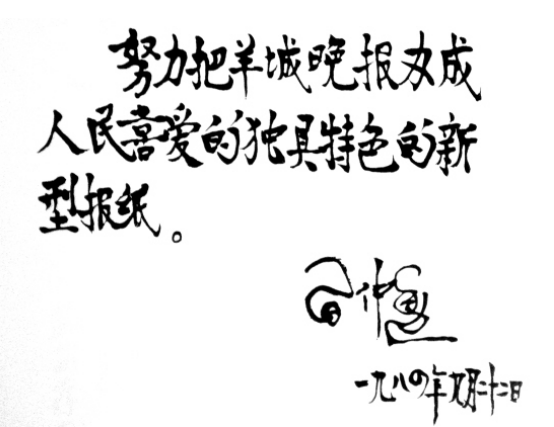 努力把羊城晚报办成
人民喜爱的独具特色的新
型报纸。
習仲勳
一九八四年九月二十二日